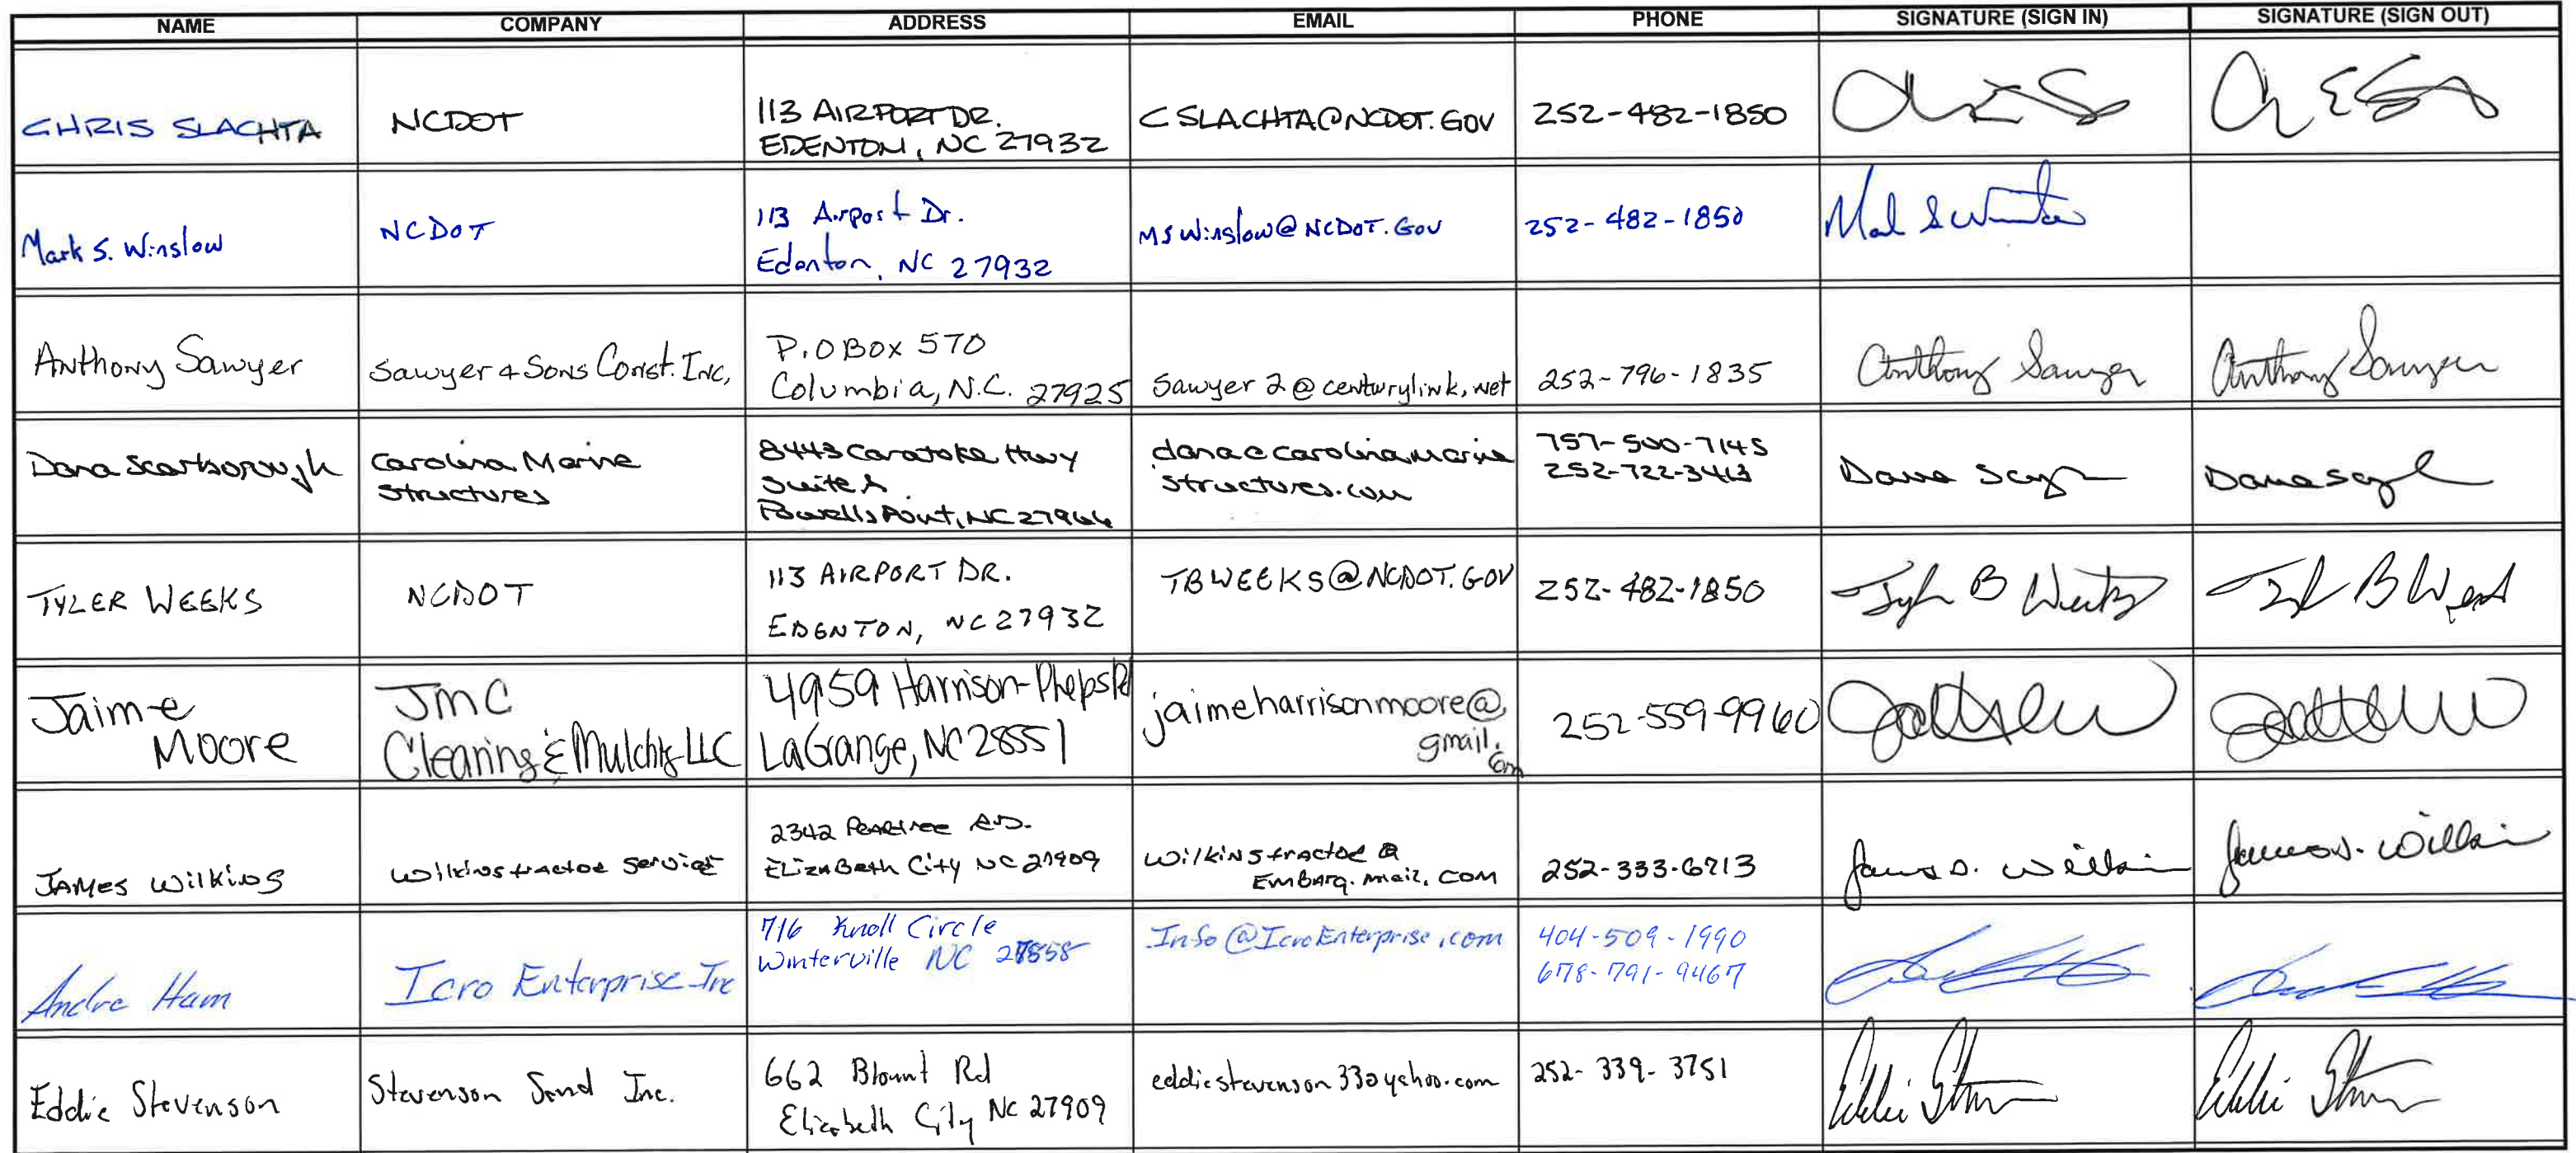 NAME COMPANY ADDRESS EMAIL PHONE SIGNATURE (SIGN IN) SIGNATURE (SIGN OUT)
CHRIS SLACHTA
NCDOT
113 AIRPORT DR.
EDENTON, NC 27932
CSLACHTA@NCDOT.GOV
252-482-1850
Mark S. Winslow
NCDOT
113 Airport Dr.
Edenton, NC 27932
MSWinslow@NCDOT.Gov
252-482-1850
Anthony Sawyer
Sawyer & Sons Const. Inc,
P.O Box 570
Columbia, N.C. 27925
Sawyer2@centurylink.net
252-796-1835
Anthony Sawyer
Anthony Sawyer
Dana Scarborough
Carolina Marine
Structures
8443 Caratoke Hwy
Suite A
Powells Point, NC 27966
dana@carolinamarine
structures.com
757-500-7145
252-722-3413
TYLER WEEKS
NCDOT
113 AIRPORT DR.
EDENTON, NC 27932
TBWEEKS@NCDOT.GOV
252-482-1850
Jaime
Moore
JMC
Clearing & Mulching LLC
4959 Harrison-Phelps Rd
LaGrange, NC 28551
jaimeharrisonmoore@
gmail.
com
252-559-9960
JAMES Wilkins
Wilkins tractor service
2342 Peartree RD.
Elizabeth City NC 27909
Wilkinstractor@
Embarq.mail.com
252-333-6713
Andre Ham
Icro Enterprise Inc
716 Knoll Circle
Winterville NC 28858
Info@IcroEnterprise.com
404-509-1990
678-791-9467
Eddie Stevenson
Stevenson Sand Inc.
662 Blount Rd
Elizabeth City NC 27909
eddiestevenson33@yahoo.com
252-339-3751